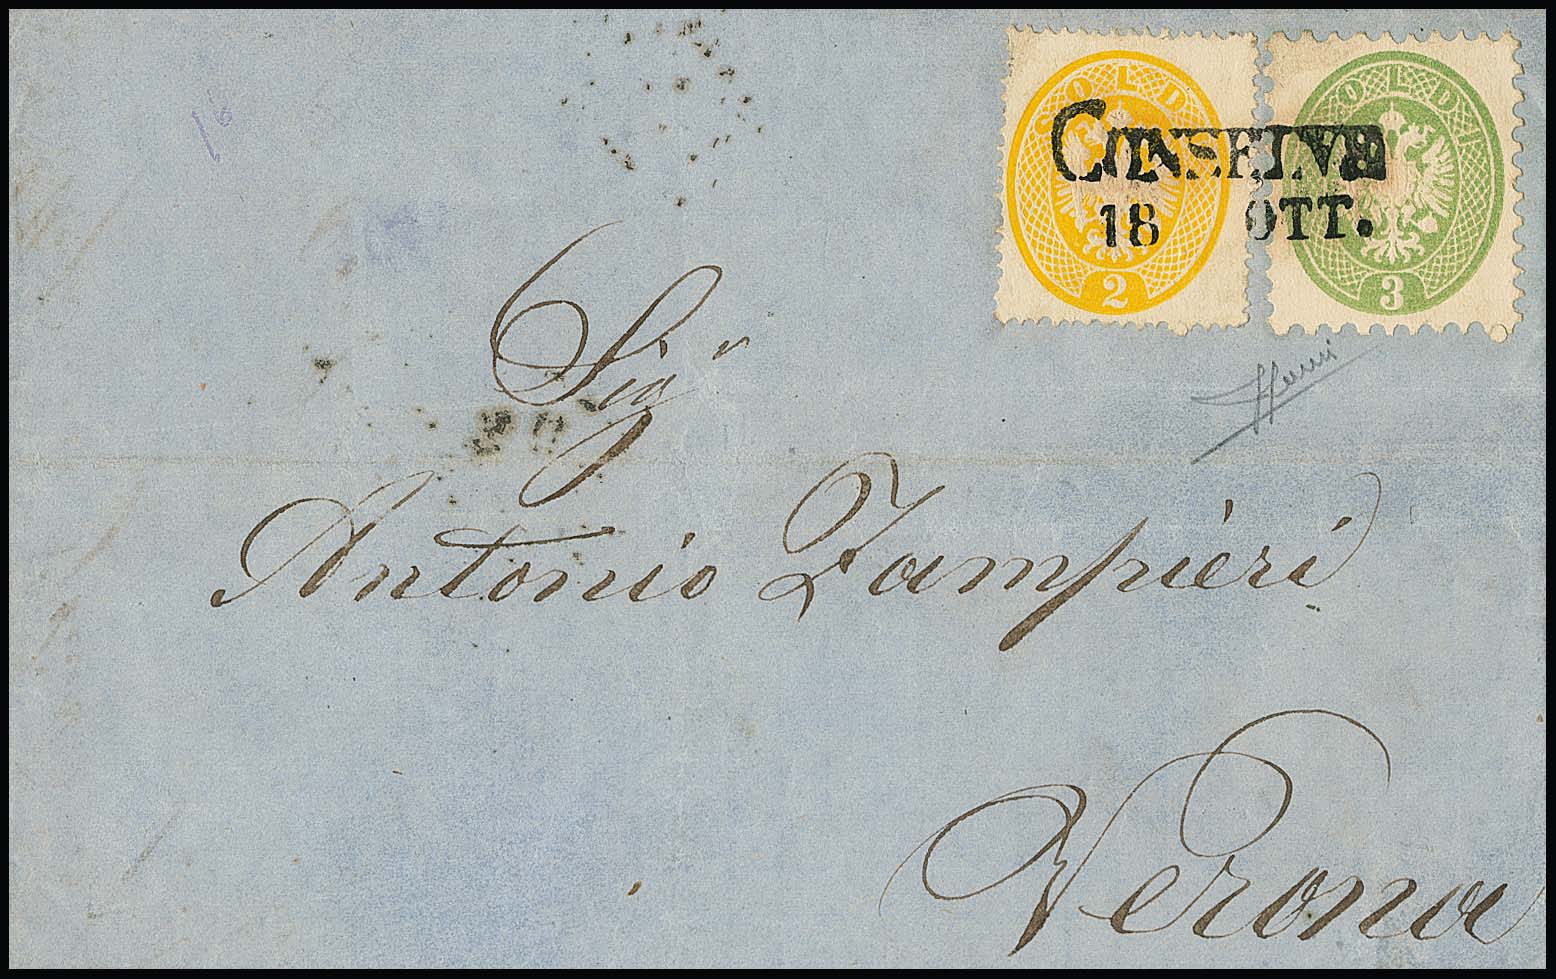 SOLDI SOLDI
CONSELVE
18 OTT.
2 3
Sigr
Antonio Zampieri
Verona